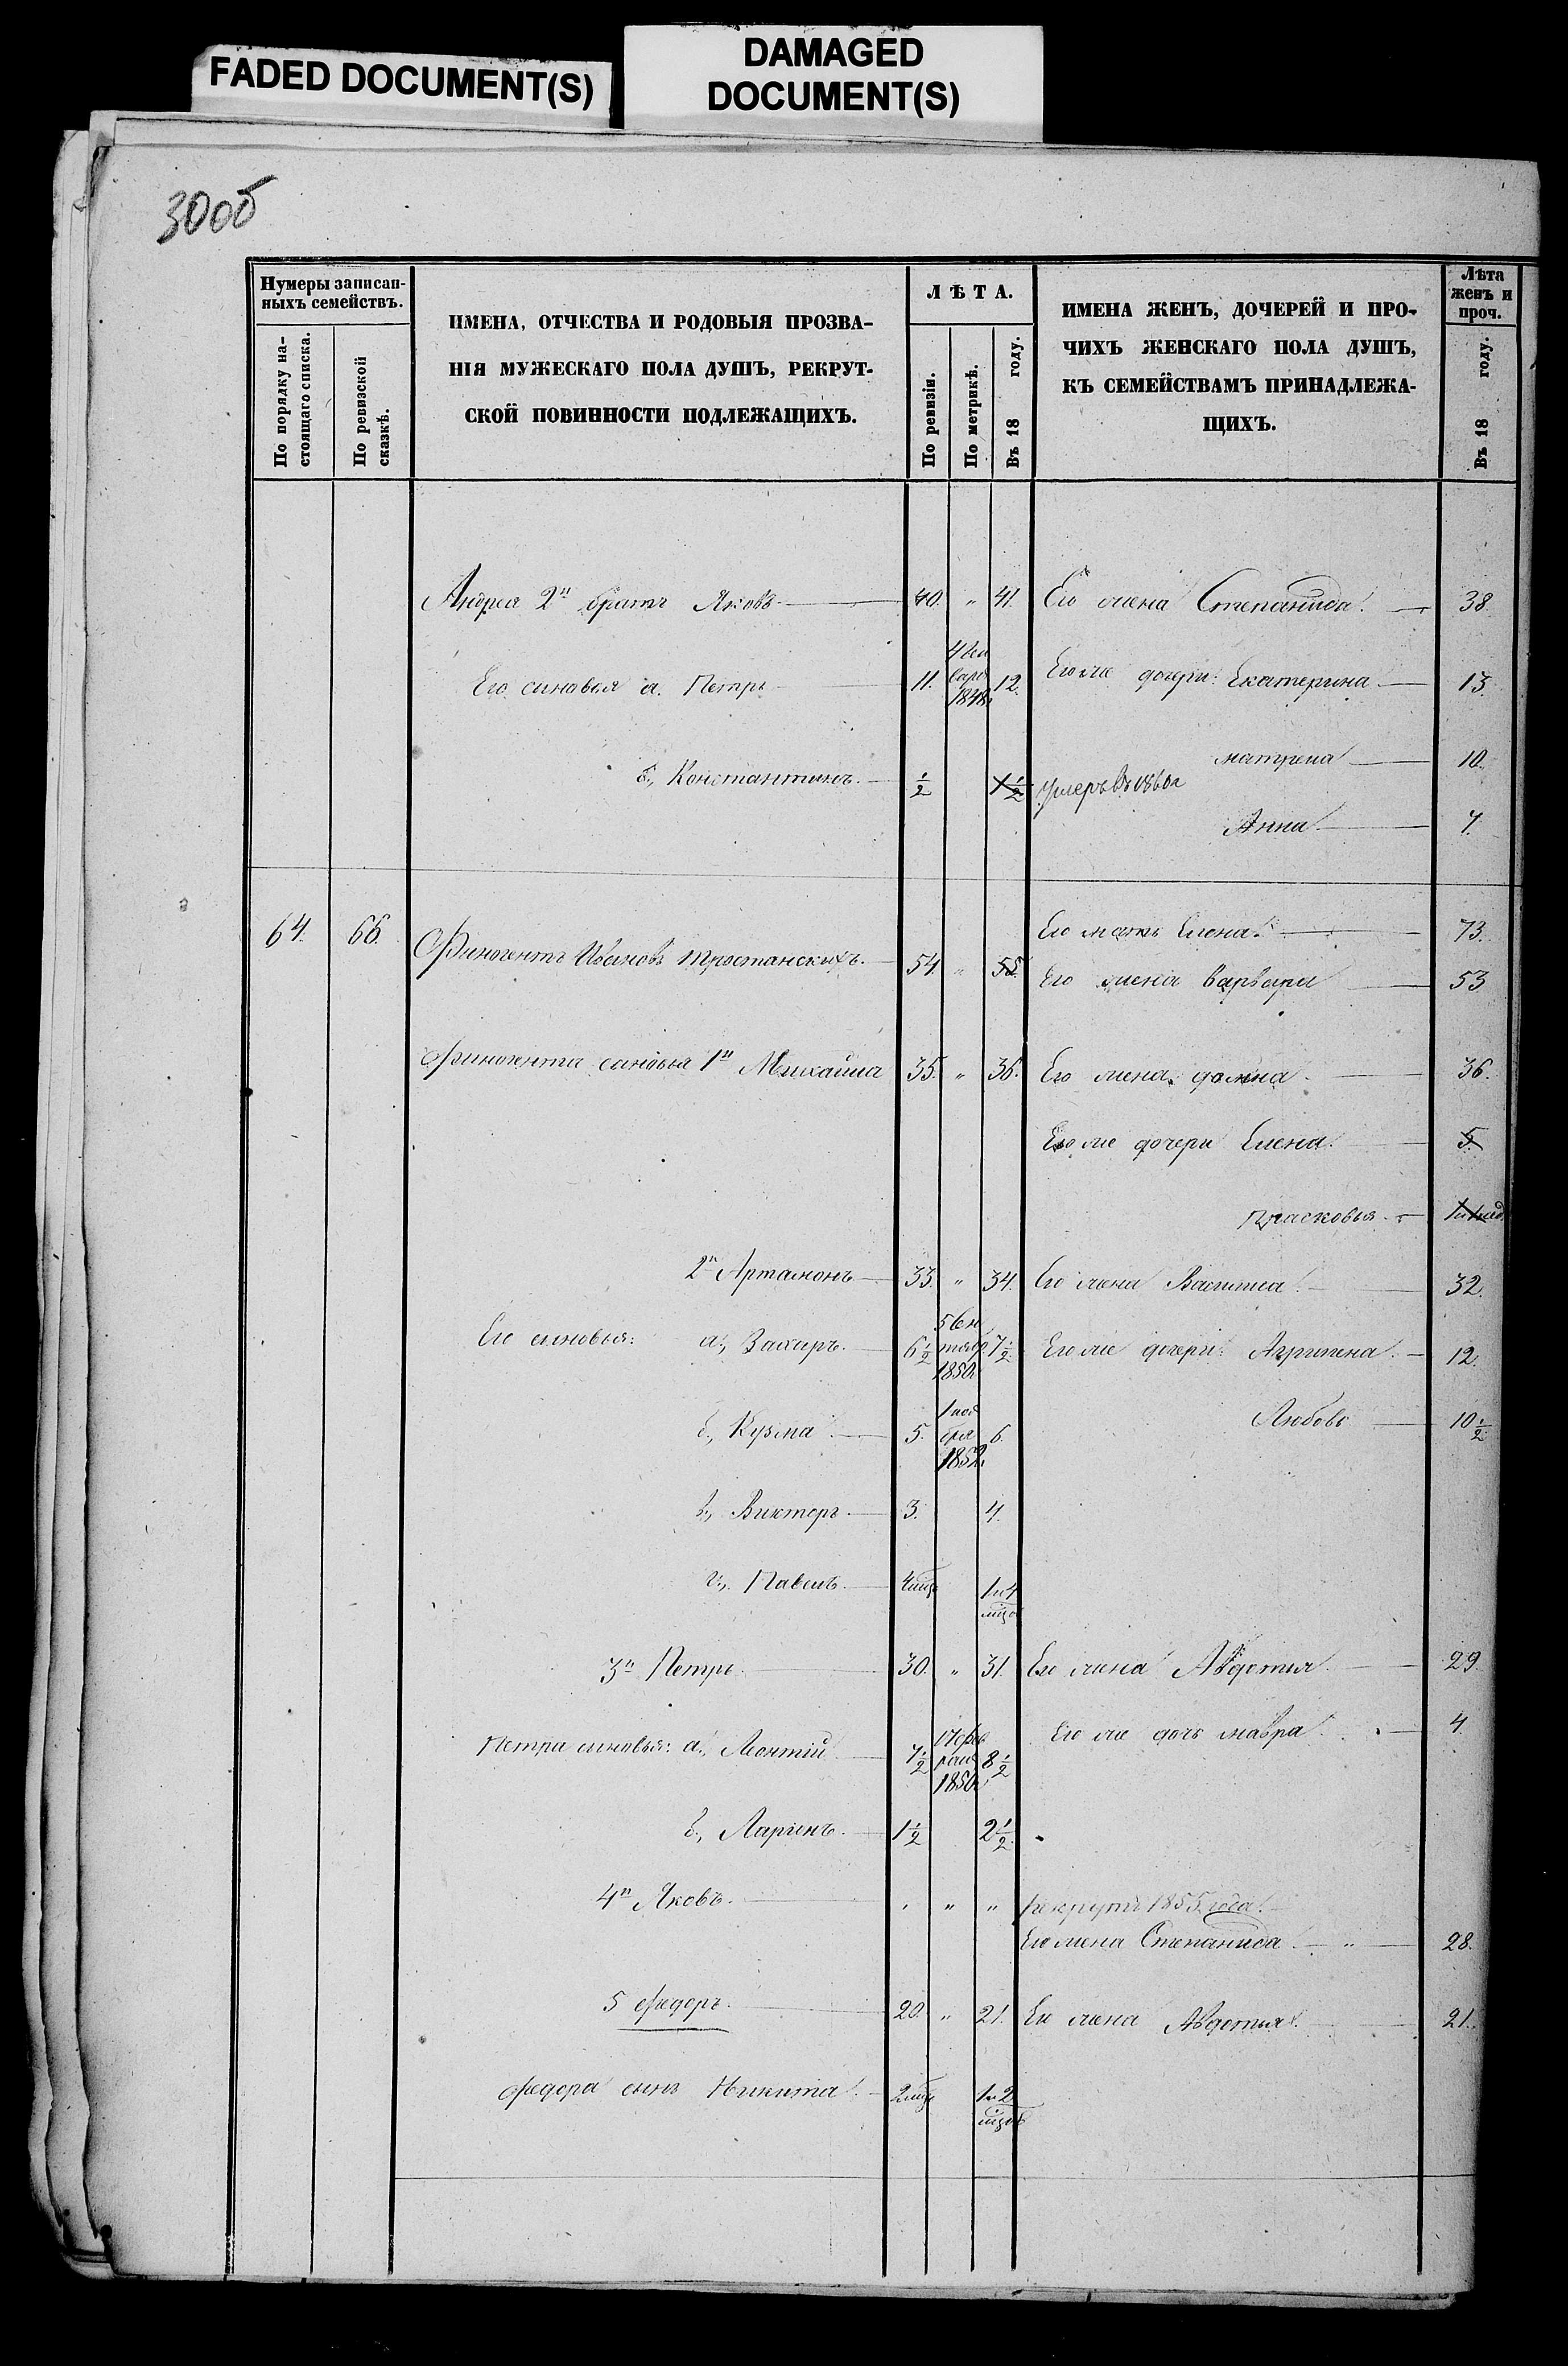 FADED DOCUMENT(S)
DAMAGED
DOCUMENT(S)
30об
Нумеры записан-
ныхъ семействъ.
По порядку на-
стоящаго списка.
По ревизской
сказкѣ.
ИМЕНА, ОТЧЕСТВА И РОДОВЫЯ ПРОЗВА-
НІЯ МУЖЕСКАГО ПОЛА ДУШЪ, РЕКРУТ-
СКОЙ ПОВИННОСТИ ПОДЛЕЖАЩИХЪ.
ЛѢТА.
По ревизіи.
По метрикѣ.
Въ 18 году.
ИМЕНА ЖЕНЪ, ДОЧЕРЕЙ И ПРО-
ЧИХЪ ЖЕНСКАГО ПОЛА ДУШЪ,
КЪ СЕМЕЙСТВАМЪ ПРИНАДЛЕЖА-
ЩИХЪ.
Лѣта
женъ и
проч.
Въ 18 году.
Андрея 2й братъ Яковъ 40. " 41. Его жена Степанида. 38.
Его сыновья а. Петръ 11. 1848. 12. Его же дочери: Екатерина 13.
матрена 10.
б., Константинъ. ½ 1½ умеръ въ 1860г
Анна 7.
64. 66. Его мать Елена. 73.
Финогентъ Ивановъ Тростанскихъ. 54. " 55. Его жена Варвара 53
Финогента сыновья 1й Михаила 35. " 36. Его жена домна 36.
Его же дочери Елена. 5.
Прасковья.
2й Артамонъ 33. " 34. Его жена Василиса. 32.
Его сыновья: а., Захаръ. 6½ 5 Сен
тябр 1850. 7½ Его же дочери: Агрипена. 12.
б., Кузма. 5. 1 ноя
бря 1852. 6. Любовь 10½
в., Викторъ. 3. 4.
г., Павелъ. 4 мца 1 и 4
мцовъ
3й Петръ. 30. " 31. Его жена Авдотья. 29.
Петра сыновья: а., Леонтій 7½ 17 фев
раля 1850. 8½ Его же дочь мавра. 4.
б., Ларіонъ. 1½ 2½
4й Яковъ. " " " рекрутъ 1855 года.
Его жена Степанида. " 28.
5 Федоръ. 20. " 21. Его жена Авдотья. 21.
Федора сынъ Никита. 2 мца 1 и 2
мцовъ